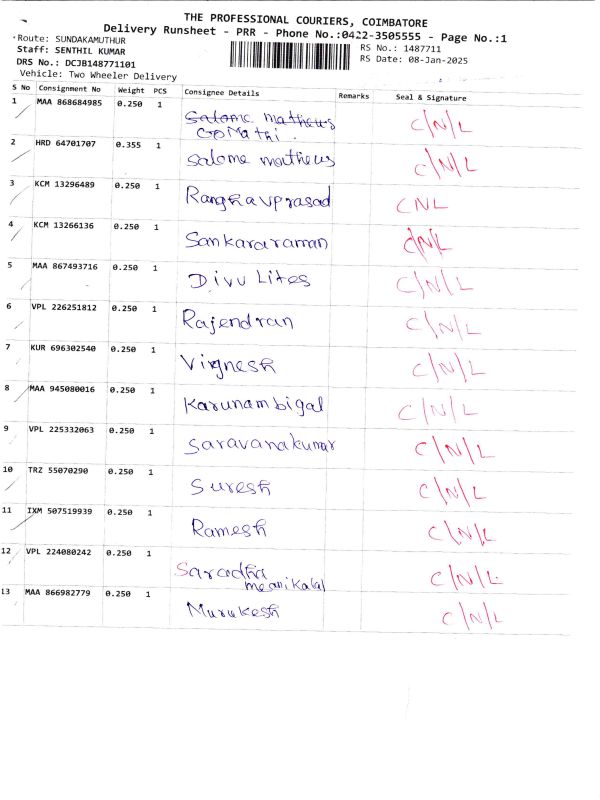 THE PROFESSIONAL COURIERS, COIMBATORE
Delivery Runsheet - PRR - Phone No.:0422-3505555 - Page No.:1
Route: SUNDAKAMUTHUR
RS No.: 1487711
Staff: SENTHIL KUMAR
RS Date: 08-Jan-2025
DRS No.: DCJB148771101
Vehicle: Two Wheeler Delivery
S No Consignment No Weight PCS Consignee Details Remarks Seal & Signature
1 MAA 868684985 0.250 1 Salome mathews C/N/L
GOMathi.
2 HRD 64701707 0.355 1 Salome mathews C/N/L
3 KCM 13296489 0.250 1 Ranghavprasad CNL
4 KCM 13266136 0.250 1 Sankararaman C/N/L
5 MAA 867493716 0.250 1 Divu Lites C/N/L
6 VPL 226251812 0.250 1 Rajendran C/N/L
7 KUR 696302540 0.250 1 Vignesh C/N/L
8 MAA 945080016 0.250 1 Karunambigal C/N/L
9 VPL 225332063 0.250 1 Saravanakumar C/N/L
10 TRZ 55070290 0.250 1 Suresh C/N/L
11 IXM 507519939 0.250 1 Ramesh C/N/L
12 VPL 224080242 0.250 1 Saradha C/N/L
13 MAA 866982779 0.250 1 Murukesh C/N/L